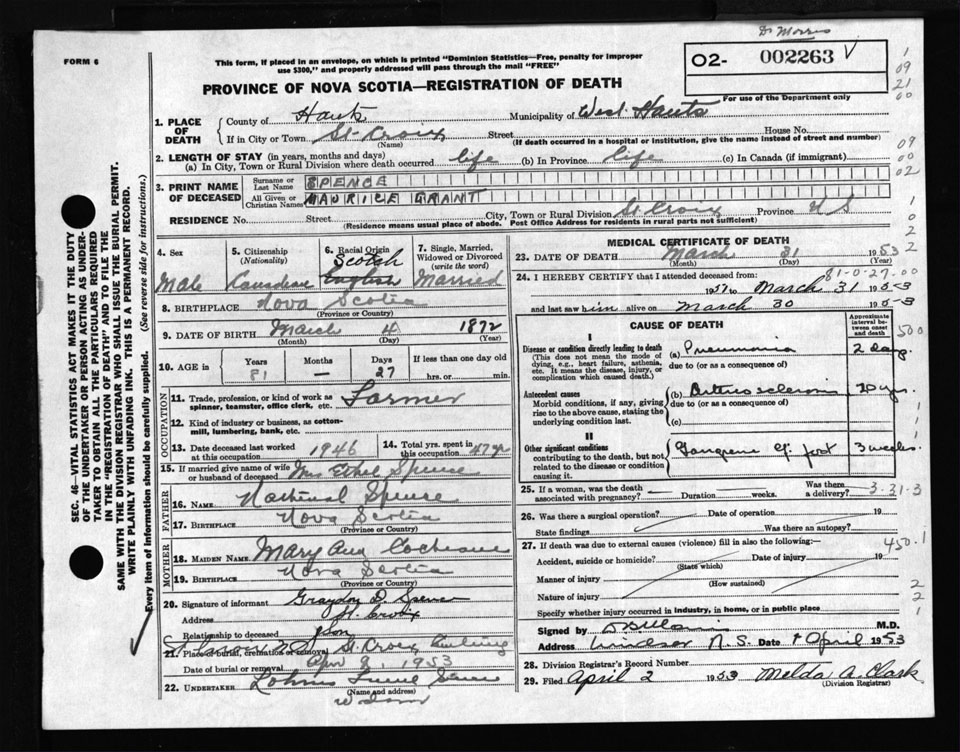 Dr Morris
FORM 6
This form, if placed in an envelope, on which is printed "Dominion Statistics—Free, penalty for improper
use $300," and properly addressed will pass through the mail "FREE"
O2- 002263 V
For use of the Department only
PROVINCE OF NOVA SCOTIA—REGISTRATION OF DEATH
1. PLACE OF DEATH
County of Hants Municipality of West Hants
If in City or Town St-Croix Street House No.
(Name) (If death occurred in a hospital or institution, give the name instead of street and number)
2. LENGTH OF STAY (in years, months and days)
(a) In City, Town or Rural Division where death occurred life (b) In Province life (c) In Canada (if immigrant)
3. PRINT NAME OF DECEASED
Surname or Last Name SPENCE
All Given or Christian Names MAURICE GRANT
RESIDENCE No. Street City, Town or Rural Division St Croix Province N S
(Residence means usual place of abode. Post Office Address for residents in rural parts not sufficient)
4. Sex Male
5. Citizenship (Nationality) Canadian
6. Racial Origin Scotch English
7. Single, Married, Widowed or Divorced (write the word) Married
8. BIRTHPLACE Nova Scotia
(Province or Country)
9. DATE OF BIRTH March 4 1872
(Month) (Day) (Year)
10. AGE IN Years 81 Months — Days 27 If less than one day old hrs. or min.
OCCUPATION
11. Trade, profession, or kind of work as spinner, teamster, office clerk, etc. Farmer
12. Kind of industry or business, as cotton-mill, lumbering, bank, etc.
13. Date deceased last worked at this occupation 1946
14. Total yrs. spent in this occupation 47
15. If married give name of wife or husband of deceased Mrs Ethel Spence
FATHER
16. NAME Spence
17. BIRTHPLACE Nova Scotia
(Province or Country)
MOTHER
18. MAIDEN NAME Mary Ann Cochrane
19. BIRTHPLACE Nova Scotia
(Province or Country)
20. Signature of informant Graydon D. Spence
Address St. Croix
Relationship to deceased Son
21. Place of burial, cremation or removal St. Croix
Date of burial or removal Apr 2, 1953
22. UNDERTAKER
(Name and address)
Windsor
MEDICAL CERTIFICATE OF DEATH
23. DATE OF DEATH March 31 1953
(Month) (Day) (Year)
81-0-27.00
24. I HEREBY CERTIFY that I attended deceased from
1951 to March 31 1953
and last saw him alive on March 30 1953
CAUSE OF DEATH
Approximate interval between onset and death
I
Disease or condition directly leading to death
(This does not mean the mode of dying, e.g., heart failure, asthenia, etc. It means the disease, injury, or complication which caused death.)
(a) Pneumonia 2 days
due to (or as a consequence of)
Antecedent causes
Morbid conditions, if any, giving rise to the above cause, stating the underlying condition last.
(b) Arteriosclerosis 20 yrs.
due to (or as a consequence of)
(c)
II
Other significant conditions
contributing to the death, but not related to the disease or condition causing it.
Gangrene of foot 3 weeks
25. If a woman, was the death associated with pregnancy? Duration weeks. Was there a delivery?
3-31-3
26. Was there a surgical operation? Date of operation 19
State findings Was there an autopsy?
27. If death was due to external causes (violence) fill in also the following:—
450.1
Accident, suicide or homicide? Date of injury 19
(State which)
Manner of injury
(How sustained)
Nature of injury
Specify whether injury occurred in industry, in home, or in public place
Signed by M.D.
Address Windsor N.S. Date 1 April 1953
28. Division Registrar's Record Number
29. Filed April 2 1953 Melda A. Clark
(Division Registrar)
SEC. 46—VITAL STATISTICS ACT MAKES IT THE DUTY
OF THE UNDERTAKER OR PERSON ACTING AS UNDER-
TAKER TO OBTAIN ALL THE PARTICULARS REQUIRED
IN THE "REGISTRATION OF DEATH" AND TO FILE THE
SAME WITH THE DIVISION REGISTRAR WHO SHALL ISSUE THE BURIAL PERMIT.
WRITE PLAINLY WITH UNFADING INK. THIS IS A PERMANENT RECORD.
Every item of information should be carefully supplied. (See reverse side for instructions.)
1
09
21
60
09
00
02
1
0
2
2
500
1
1
1
2
2
1